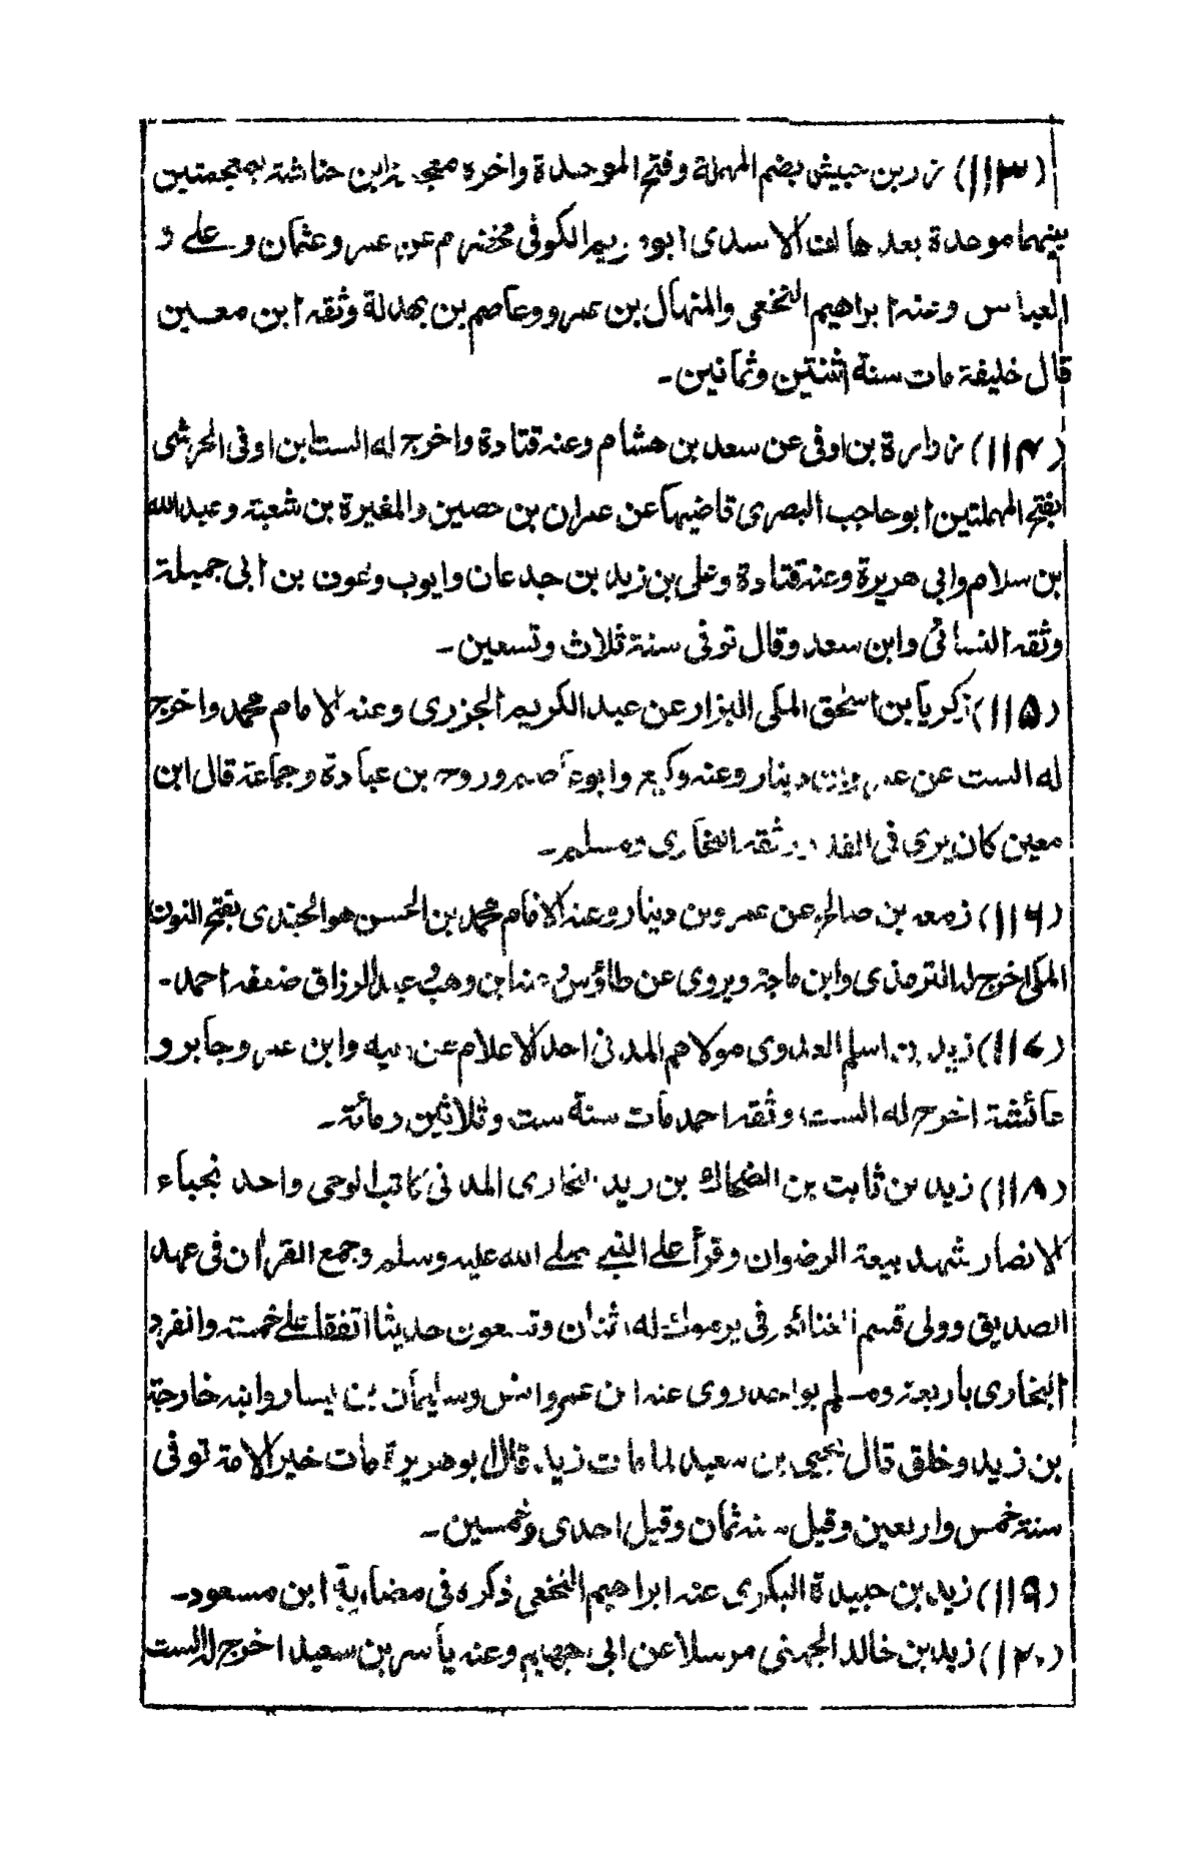 (۱۱۳) زر بن حبیش بضم المهملة وفتح الموحدة واخره معجمة ابن حباشة بمعجمتین
بینهما موحدة بعدها الف الاسدی ابو مریم الکوفی مخضرم عن عمر وعثمان وعلی و
العباس وعنه ابراهیم النخعی والمنهال بن عمرو وعاصم بن بهدلة وثقه ابن معین
قال خلیفة مات سنة اثنتین وثمانین۔
(۱۱۴) زرارة بن اوفی عن سعد بن هشام وعنه قتادة واخرج له الستة ابن اوفی الحرشی
بفتح المهملتین ابو حاجب البصری قاضیها عن عمران بن حصین والمغیرة بن شعبة وعبد الله
بن سلام وابی هریرة وعنه قتادة وعلی بن زید بن جدعان وایوب وعوف بن ابی جمیلة
وثقه النسائی وابن سعد وقال توفی سنة ثلاث وتسعین۔
(۱۱۵) زکریا بن اسحٰق المکی البزار عن عبد الکریم الجزری وعنه الامام محمد واخرج
له الست عن عمرو بن دینار وعنه وکیع وابو عاصم وروح بن عبادة وجماعة قال ابن
معین کان یری فی القدر وثقه البخاری ومسلم۔
(۱۱۶) زمعه بن صالح عن عمرو بن دینار وعنه الامام محمد بن الحسن هو الجندی بفتح النون
المکی اخرج له الترمذی وابن ماجة ویروی عن طاؤس ابن وهب عبد الرزاق ضعفه احمد۔
(۱۱۷) زید بن اسلم العدوی مولاهم المدنی احد الاعلام عن ابیه وابن عمر وجابر و
عائشة اخرج له الست، وثقه احمد مات سنة ست وثلاثین ومائة۔
(۱۱۸) زید بن ثابت بن الضحاک بن زید النجاری المدنی کاتب الوحی واحد نجباء
الانصار شهد بیعة الرضوان وقرأ علی النبی صلی الله علیه وسلم وجمع القرآن فی عهد
الصدیق وولی قسم الغنائم فی یرموك له، اثنان وتسعون حدیثا اتفقا علی خمسة وانفرد
البخاری باربعة ومسلم بواحد روی عنه ابن عمر وانس وسلیمان بن یسار وابنه خارجة
بن زید وخلق قال یحیی بن سعید لما مات زید قال ابو هریرة مات خیر الامة توفی
سنة خمس واربعین وقیل سنة ثمان وقیل احدی وخمسین۔
(۱۱۹) زید بن حبیدة البکری عنه ابراهیم النخعی ذکره فی مضاربة ابن مسعود۔
(۱۲۰) زید بن خالد الجهنی مرسلا عن ابی جهیم وعنه یاسر بن سعید اخرج له الست